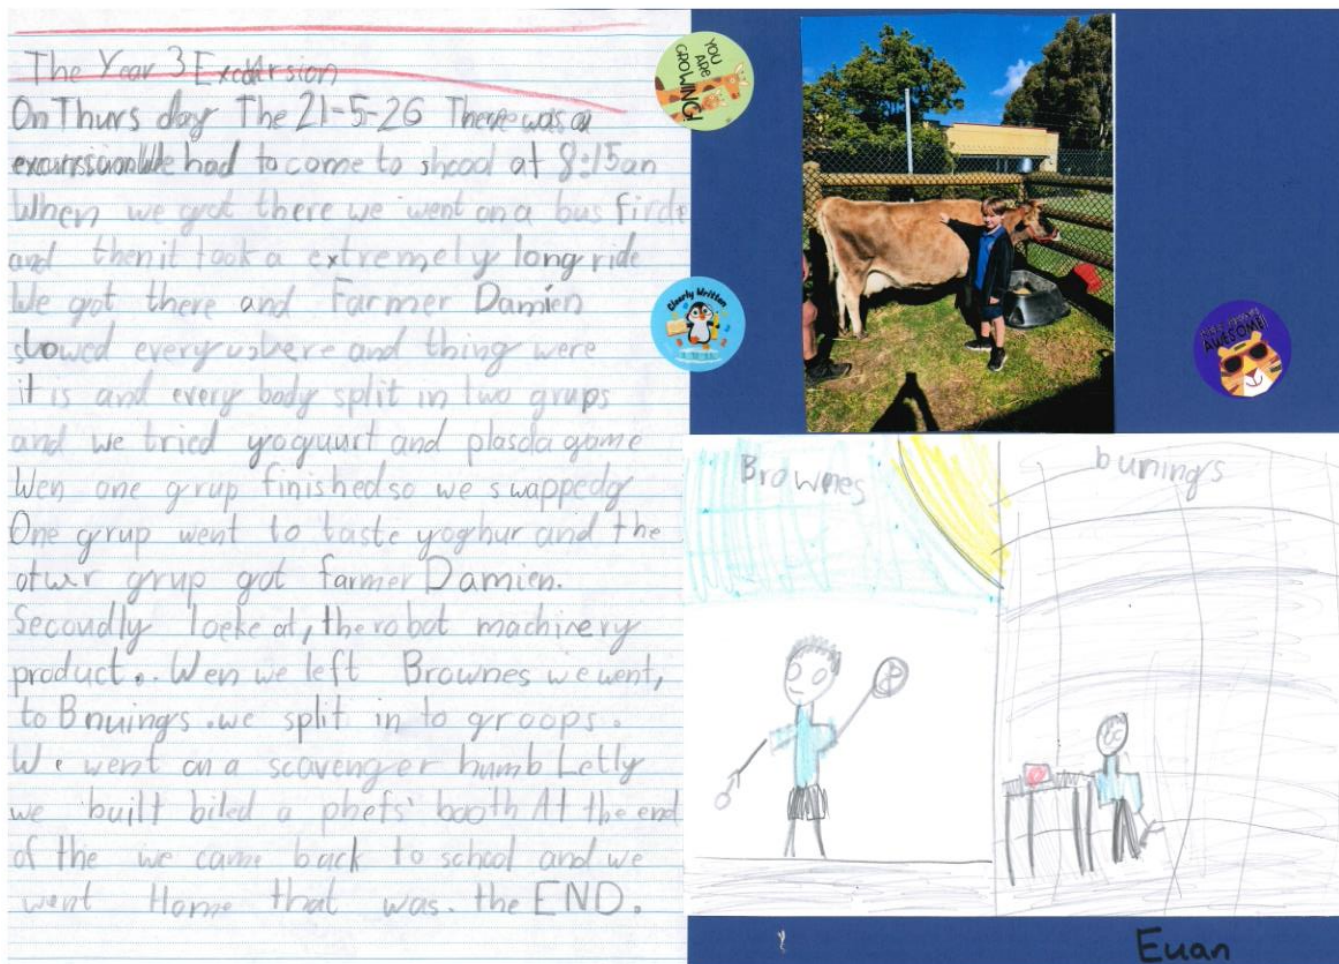 The Year 3 Excursion
On Thurs day The 21-5-26 There was a
excurssion We had to come to shcool at 8:15an
When we grot there we went on a bus firde
and then it took a extremely long ride
We got there and Farmer Damien
showed every where and thing were
it is and every body split in two grups
and we tried yoguurt and plasda game
Wen one grup finished so we swapped
One grup went to taste yoghur and the
otwr grup got farmer Damien.
Secoundly loeke at, the robot machinery
product.. Wen we left Brownes we went,
to Bnuings .we split in to groops.
We went on a scavenger humb Letly
we built biled a phefs' booth At the end
of the we came back to school and we
went Home that was. the END.
YOU ARE GROWING!
Clearly Written
AWESOME!
Brownes
bunings
Euan